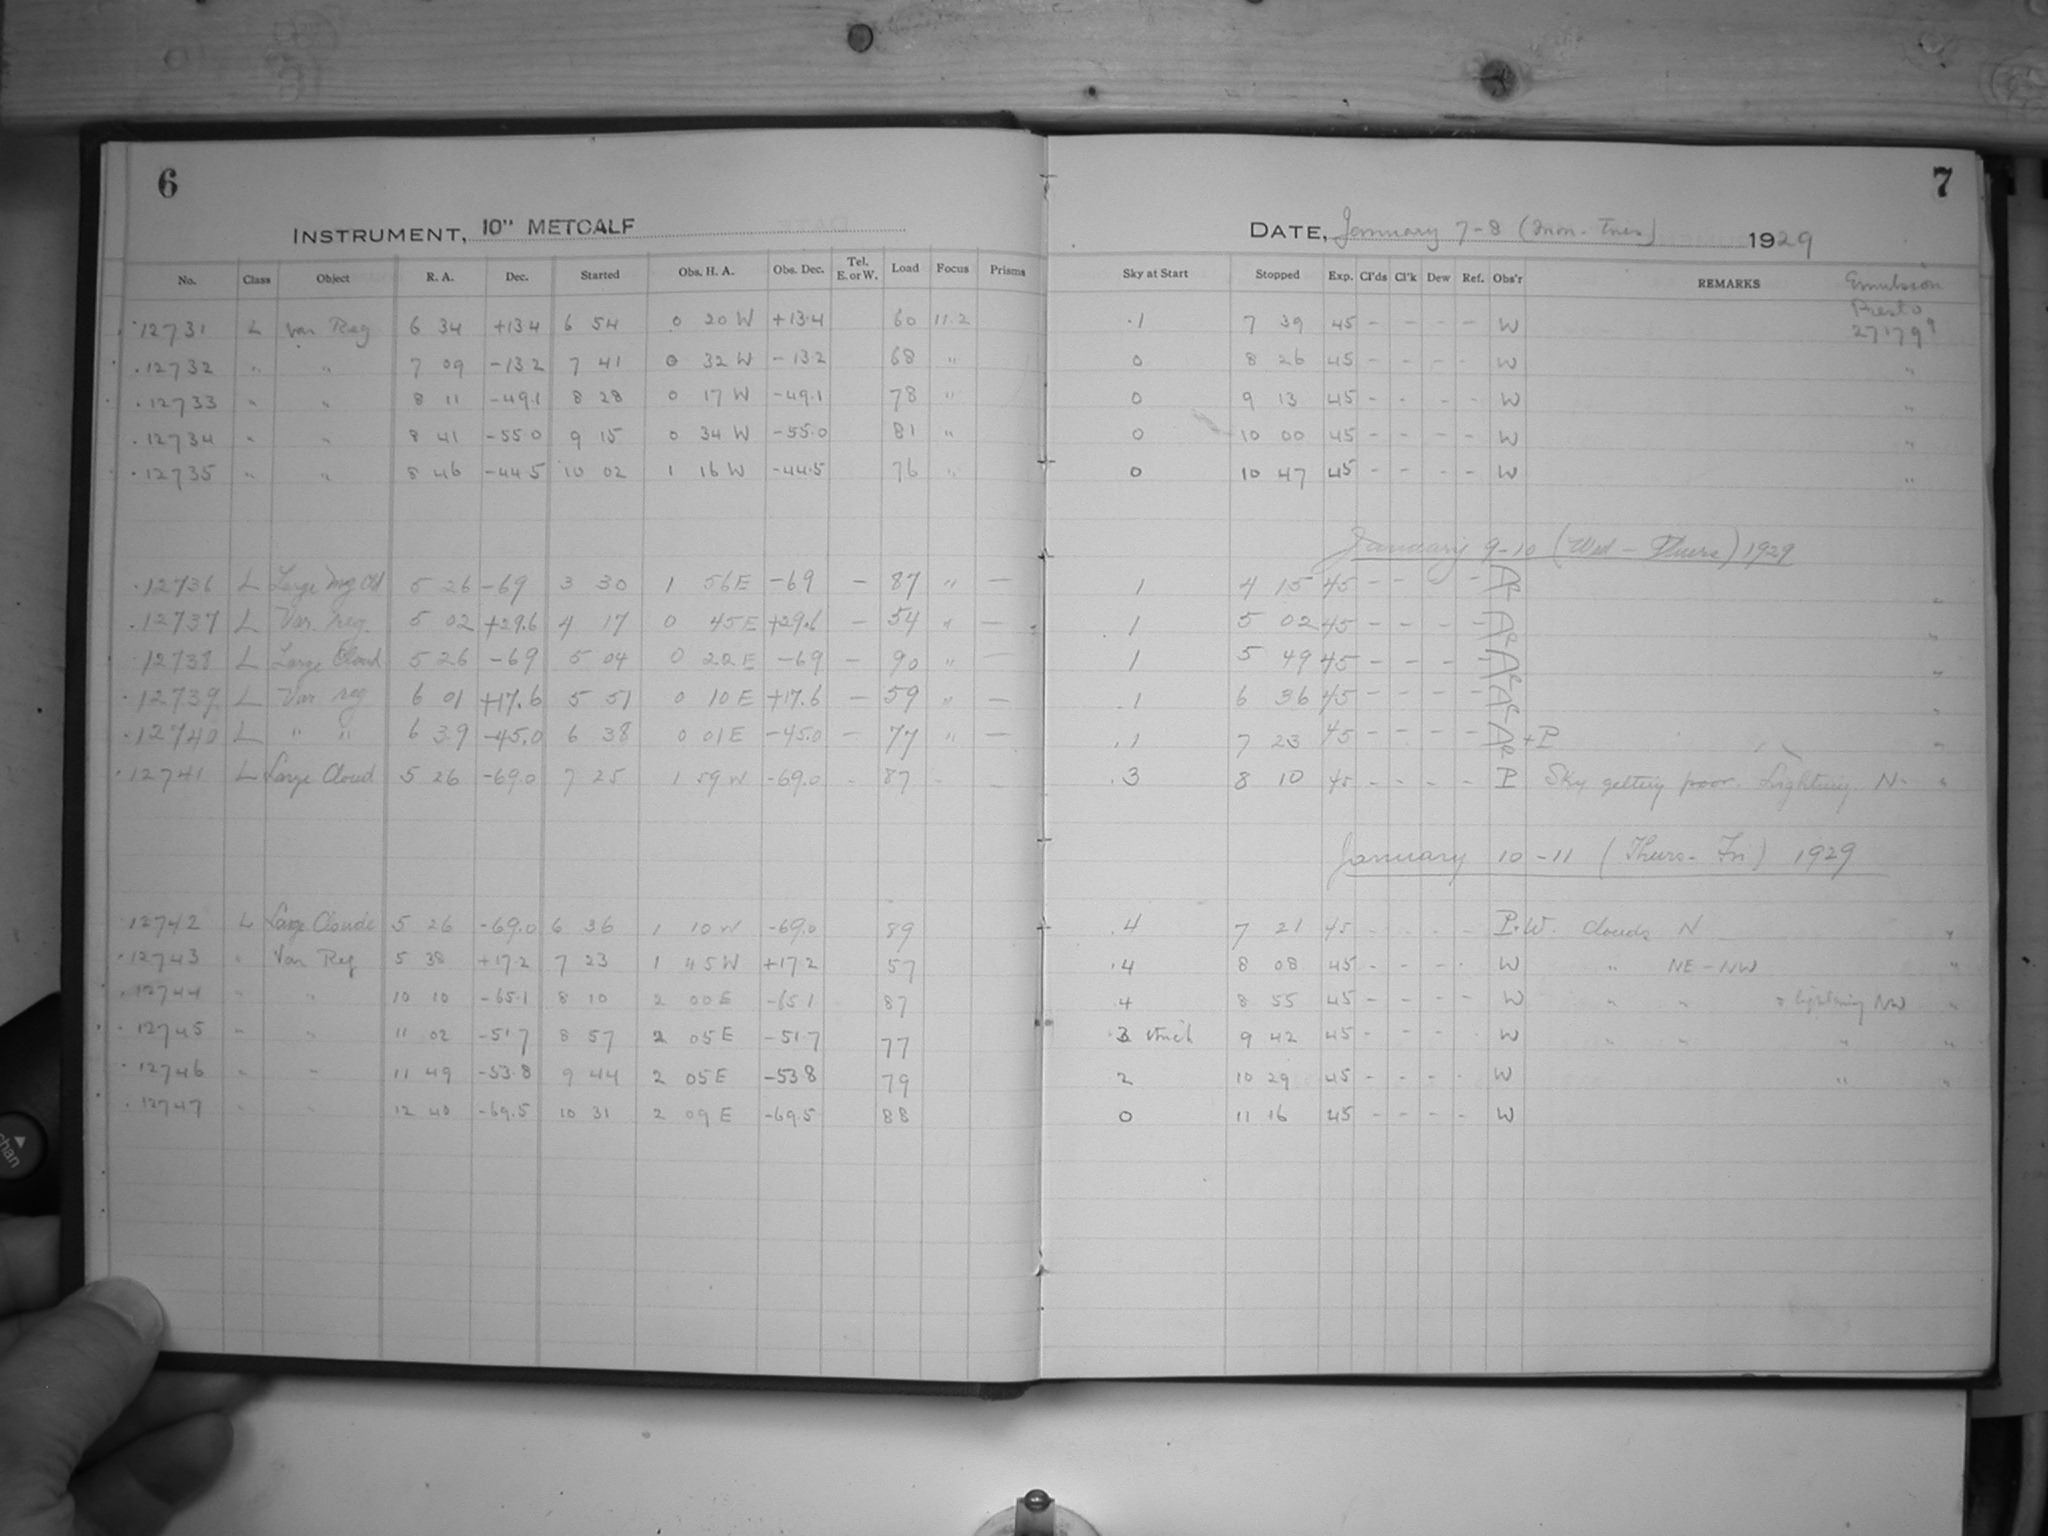 6
INSTRUMENT, 10" METCALF
No. Class Object R. A. Dec. Started Obs. H. A. Obs. Dec. Tel. E. or W. Load Focus Prisms
12731 L Var Reg 6 34 +13.4 6 54 0 20 W +13.4 60 11.2
12732 " " 7 09 -13.2 7 41 0 32 W -13.2 68 "
12733 " " 8 11 -49.1 8 28 0 17 W -49.1 78 "
12734 " " 8 41 -55.0 9 15 0 34 W -55.0 81 "
12735 " " 8 46 -44.5 10 02 1 16 W -44.5 76 "
12736 L Large Mg Cld 5 26 -69 3 30 1 56 E -69 - 87 " -
12737 L Var. reg. 5 02 +29.6 4 17 0 45 E +29.6 - 54 " -
12738 L Large Cloud 5 26 -69 5 04 0 22 E -69 - 90 " -
12739 L Var reg 6 01 +17.6 5 51 0 10 E +17.6 - 59 " -
12740 L " " 6 39 -45.0 6 38 0 01 E -45.0 - 77 " -
12741 L Large Cloud 5 26 -69.0 7 25 1 59 W -69.0 - 87 - -
12742 L Large Cloude 5 26 -69.0 6 36 1 10 W -69.0 89
12743 " Var Reg 5 38 +17.2 7 23 1 45 W +17.2 57
12744 " " 10 10 -65.1 8 10 2 00 E -65.1 87
12745 " " 11 02 -51.7 8 57 2 05 E -51.7 77
12746 " " 11 49 -53.8 9 44 2 05 E -53.8 79
12747 " " 12 40 -69.5 10 31 2 09 E -69.5 88
7
DATE, January 7-8 (Mon. Tues) 1929
Sky at Start Stopped Exp. Cl'ds Cl'k Dew Ref. Obs'r REMARKS Emulsion
Presto
.1 7 39 45 - - - - W 271799
0 8 26 45 - - - - W "
0 9 13 45 - - - - W "
0 10 00 45 - - - - W "
0 10 47 45 - - - - W "
January 9-10 (Wed - Thurs) 1929
1 4 15 45 - - - "
1 5 02 45 - - - - "
1 5 49 45 - - - - "
.1 6 36 45 - - - - "
.1 7 23 45 - - - - + P "
.3 8 10 45 - - - - P Sky getting poor. Lightning N- "
January 10-11 (Thurs- Fri) 1929
.4 7 21 45 - - - - P.W. Clouds N "
.4 8 08 45 - - - - W " NE - NW "
4 8 55 45 - - - - W " " & lightning NW "
9 42 45 - - - - W " " " "
2 10 29 45 - - - - W " "
0 11 16 45 - - - - W